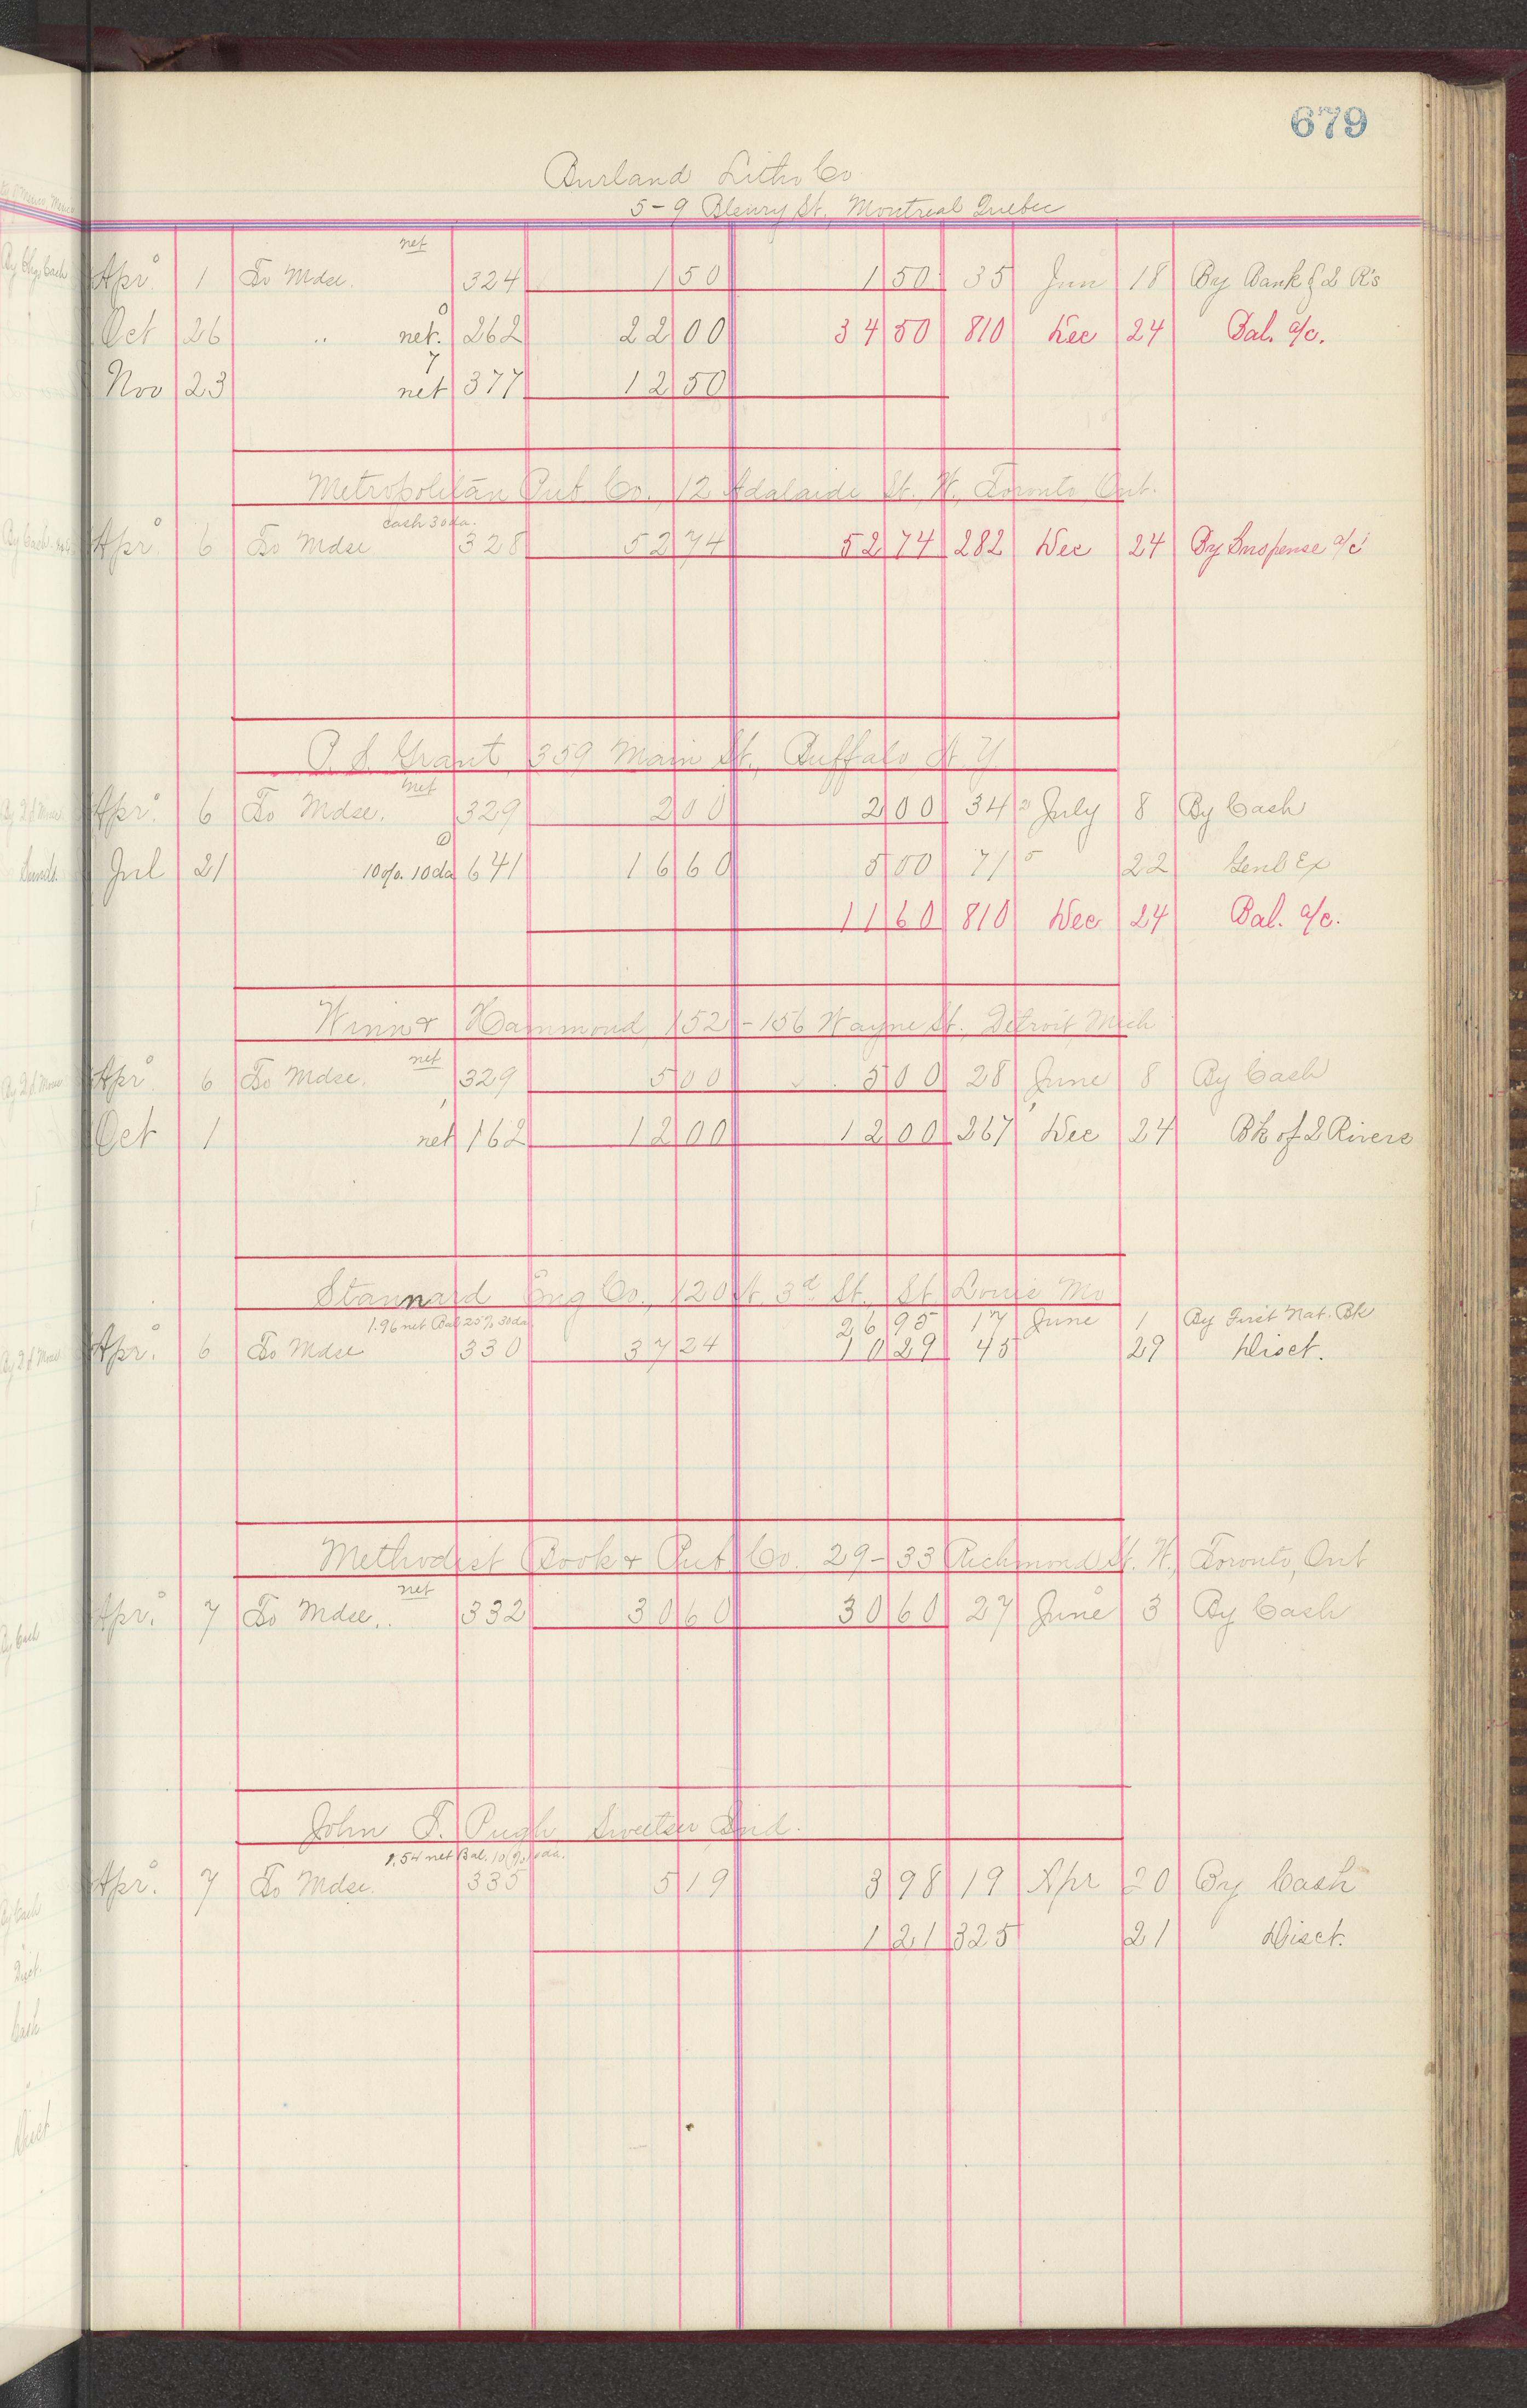 679
Burland Litho Co
5-9 Bleury St. Montreal Quebec
net
Apr 1 To Mdse. 324 1 50 1 50 35 Jun 18 By Bank of 2 R's
Oct 26 " net. 262 22 00 34 50 810 Dec 24 Bal. a/c.
Nov 23 net 377 12 50
Metropolitan Pub Co., 12 Adalaide St. W., Toronto, Ont.
cash 30 da.
Apr 6 To Mdse 328 52 74 52 74 282 Dec 24 By Suspense a/c
Grant, 359 Main St., Buffalo, N.Y.
net
Apr. 6 To Mdse. 329 2 00 2 00 34 July 8 By Cash
Jul 21 10% 10 da 641 16 60 5 00 71 22 Genl Ex
11 60 810 Dec 24 Bal. a/c.
Winn & Hammond, 152-156 Wayne St., Detroit, Mich
net
Apr. 6 To Mdse. 329 5 00 5 00 28 June 8 By Cash
Oct 1 net 162 12 00 12 00 267 Dec 24 Bk of 2 Rivers
Stannard Eng Co., 120 N. 3d St., St Louis Mo
1.96 net Bal 25% 30 da. 26 95 17 June 1 By First Nat. Bk
Apr. 6 To Mdse 330 37 24 10 29 45 29 Disct.
Methodist Book & Pub Co. 29-33 Richmond St. W., Toronto, Ont
net
Apr. 7 To Mdse .. 332 30 60 30 60 27 June 3 By Cash
John T. Pugh Sweetser Ind.
1.54 net Bal. 10%
Apr. 7 To Mdse. 335 5 19 3 98 19 Apr 20 By Cash
1 21 325 21 Disct.